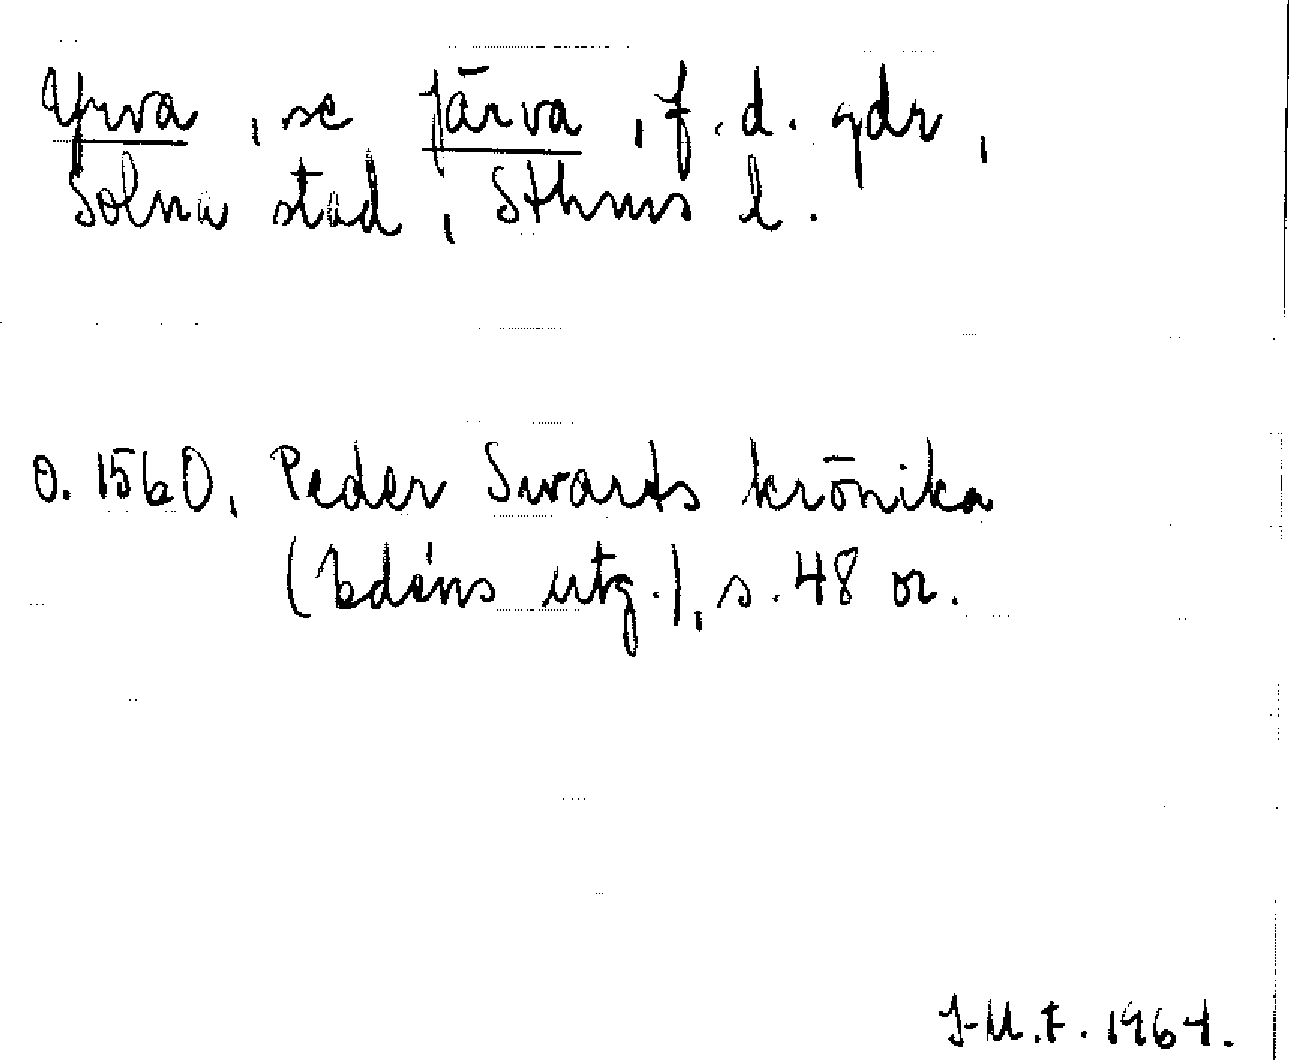 Yrva, se Järva, f.d. gdr,
Solna stad, Sthms l.
o. 1560, Peder Swarts krönika
(Edéns utg.), s. 48 or.
J-M.F. 1964.